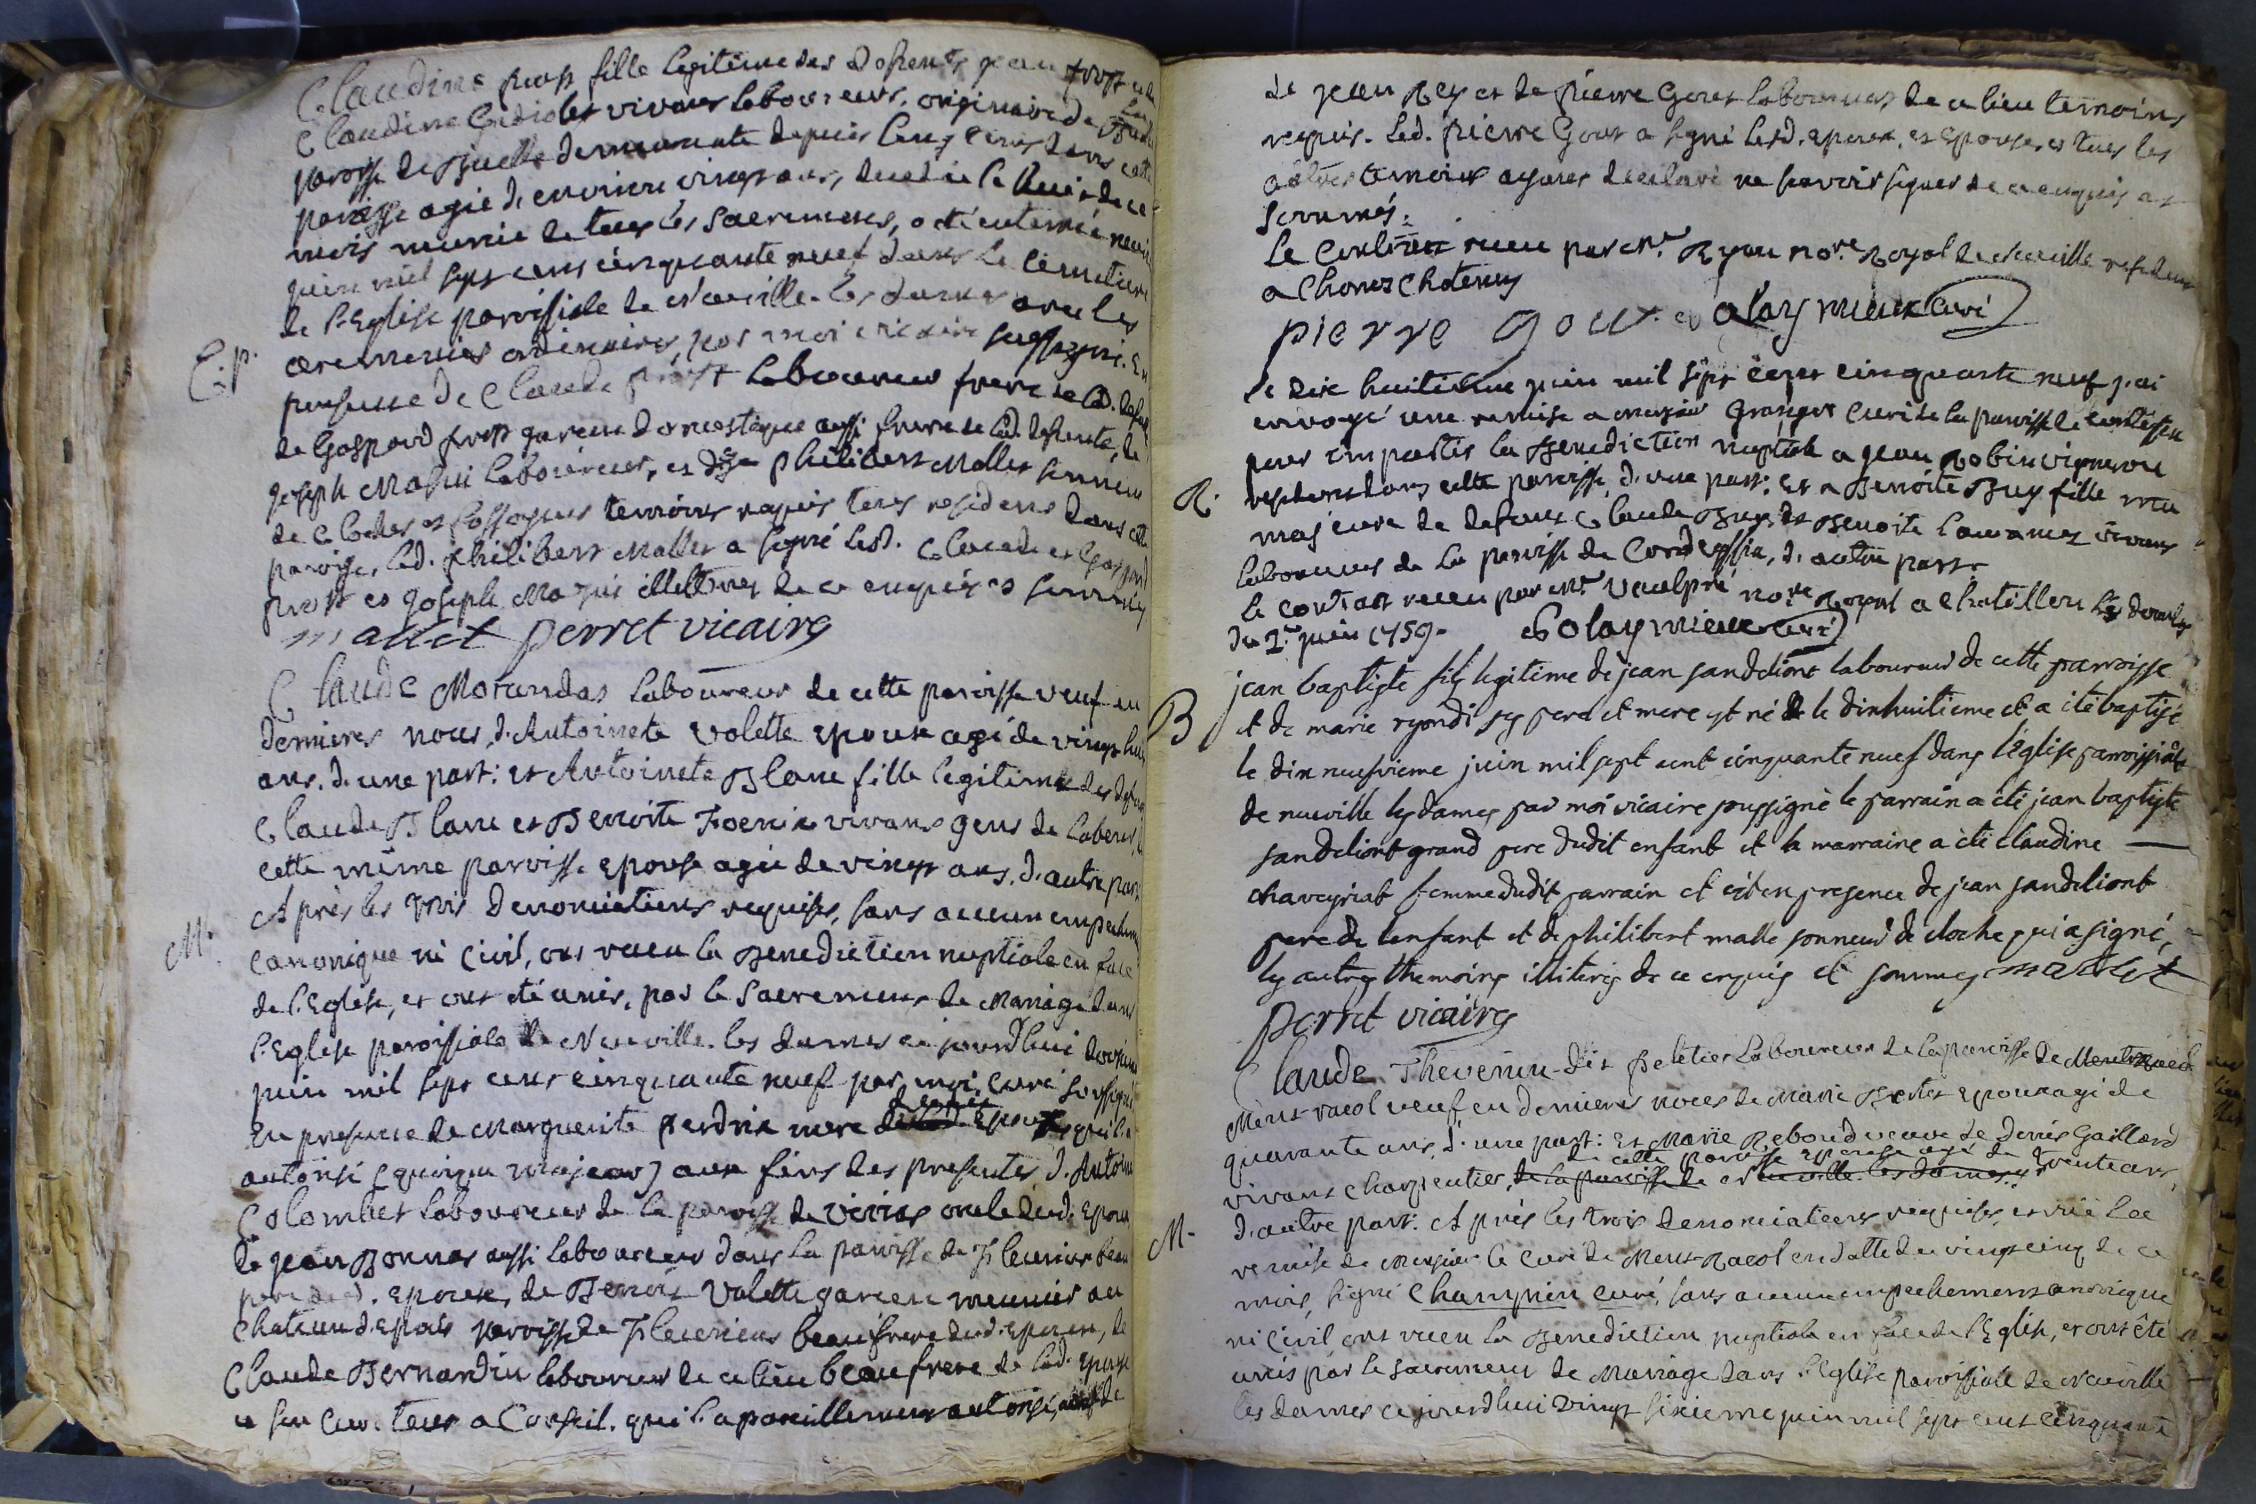 Claudine prost fille legitime des defuents jean prost et de
Claudine vivans laboureurs, originaire de
paroisse de Buelle demeurante depuis long tems dans cette
paroisse agée d'environ vingt ans, decedée le huit de ce
mois munie de tous les sacremens, a été enterrée
juin mil sept cens cinquante neuf dans le cimetiere
de l'Eglise paroissiale de Neuville les dames avec les
ceremonies ordinaires, par moi vicaire sussigné. En
E.p.
presence de Claude prost laboureur frere de lad. defunte
de Gaspard prost garcon domestique aussi frere de lad. defunte, de
joseph Mazui laboureur, et de philibert Mallet sonneur
de Cloches et fossoyeur temoins requis tous residens dans cette
paroisse, led. philibert Mallet a signé lesd. Claude et Gaspard
prost et joseph Mazui illettrez de ce enquis et sommés
mallet perret vicaire
Claude Morandas laboureur de cette paroisse veuf en
dernieres noces d'Antoinete Volette epoux agé de vingt huit
ans, d'une part: et Antoinete Blanc fille legitime des defunts
Claude Blanc et Benoite vivans gens de labeur,
cette même paroisse epouse agée de vingt ans, d'autre part
M.
Après les trois denonciations requises, sans aucun empechement
canonique ni civil, ont recu la Benediction nuptiale en face
de l'Eglise, et ont été unis, par le sacrement de Mariage dans
l'Eglise paroissiale de Neuville les dames ce jourd'hui
juin mil sept cens cinquante neuf par moi curé soussigné
En presence de Marguerite perdrix mere epoux
autorisé (quoique majeur) aux fins des presentes d'Antoine
Colombet laboureur de la paroisse de oncle dud. Epoux
de jean Bonnas aussi laboureur dans la paroisse de Fleurieux beau
pere dud. epoux, de Benoit Valette garcon meunier au
Chateau d'Epeis paroisse de Fleurieux beaufrere dud. epoux, de
Claude Bernardin laboureur de ce lieu beaufrere de lad. epouse
et son Curateur a Conseil, qui l'a pareillement autorisé, de
de jean Rey et de Pierre Gout laboureurs de ce lieu temoins
requis. Led. Pierre Gout a signé lesd. epoux, et epouse, et tous les
autres temoins ayans declaré ne scavoir signer de ce enquis et
sommés.
Le contrat recu par Me. Ryou nore. Royal de Neuville residant
a Chones Chateney
pierre gout. et olaymieux curé
Le dix huitieme juin mil sept cens cinquante neuf j'ai
envoyé une remise a messire Granger curé de la paroisse de
pour impartir la Benediction nuptiale a jean Robin vigneron
R.
residant dans cette paroisse, d'une part; et a Benoite Buy fille
majeure de defunt Claude Buy et de Benoite vivans
laboureurs de la paroisse de Condeyssia, d'autre part.
Le contrat receu par Me. Vaulpré nore. Royal a Chatillon les dombes
du 2.me juin 1759. olaymieux curé
jean baptiste fils legitime de jean sandeliont laboureur de cette parroisse
B
et de marie ryondi ses pere et mere est né le dixhuitieme et a été baptisé
le dix neufvieme juin mil sept cent cinquante neuf dans l'église parroissiale
de neuville les dames par moi vicaire soussigné le parrain a été jean baptiste
sandeliont grand pere dudit enfant et la marraine a été claudine
chaveyriat femme dudit parrain et été en presence de jean sandeliont
pere de lenfant et de philibert malle sonneur de cloche qui a signé,
les autres themoins illiterés de ce enquis et sommes mallet
perret vicaire
Claude Thevenin dit Peletier laboureur de la paroisse de
Mont racol veuf en dernieres noces de Marie epoux agé de
quarante ans, d'une part: et Marie Reboud veuve de Denis Gaillard
de cette paroisse epouse agé de
vivant charpentier, de la paroisse de Neuville les dames, trente ans,
M.
d'autre part. Après les trois denonciations requises, et vüe la
remise de messire le curé de Mont-Racol en datte du vingt cinq de ce
mois, signé Champnin curé, sans aucun empechement canonique
ni civil ont recu la Benediction nuptiale en face de l'Eglise, et ont été
unis par le sacrement de Mariage dans l'Eglise paroissiale de Neuville
les dames ce jourd'hui vingt sixieme juin mil sept cent cinquante